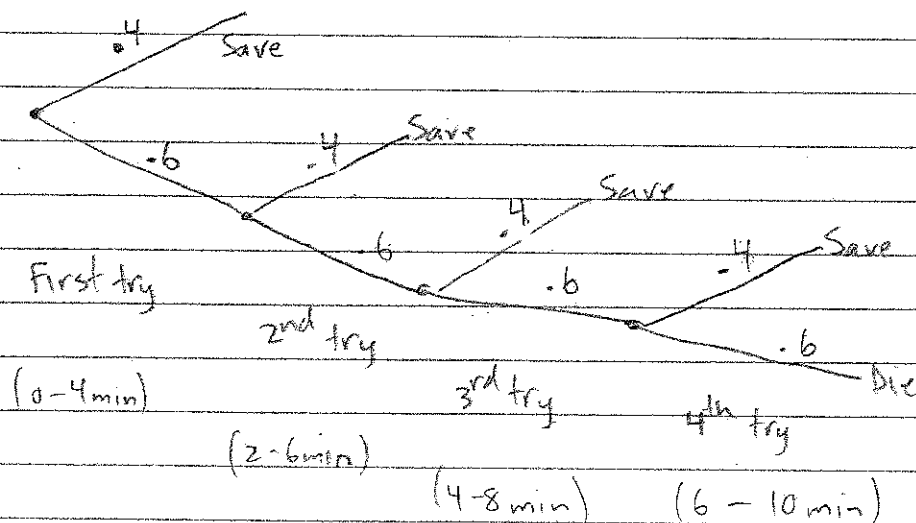 .4
Save
.6
.4
Save
.6
.4
Save
.6
.4
Save
.6
Die
First try
2nd try
3rd try
4th try
(0-4min)
(2-6min)
(4-8min)
(6-10min)